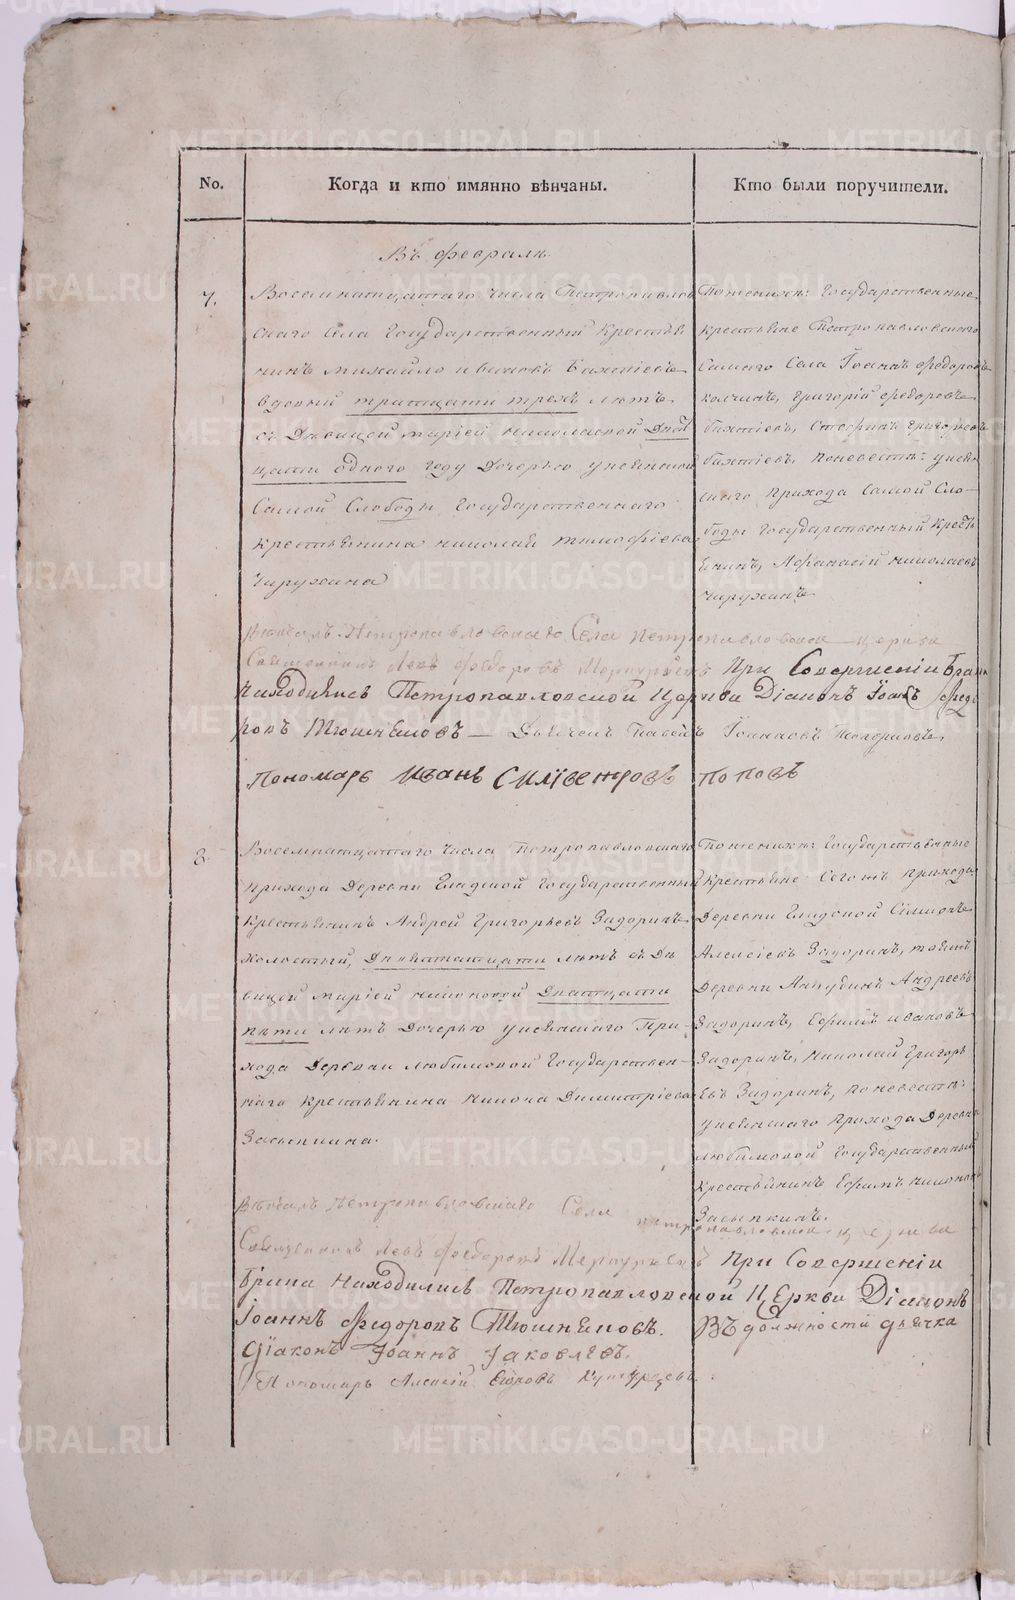 No.
Когда и кто имянно вѣнчаны.
Кто были поручители.
Въ февралѣ
7.
Восемнатцатаго Числа Петропавлов
скаго Села Государственный Крестья
нинъ михайло ивановъ Бахтіевъ
вдовый тратцати трехъ лѣтъ
съ Дѣвицей маріей николаевой Дват
цати одного году Дочерью уневинской
Самой Слободы Государственнаго
крестьянина николая тимофіева
Чирухина
По женихѣ: Государственные
крестьяне Петропавловскаго
Самаго Села Їоаннъ ѳедоровъ
григорій ѳедоровъ
бахтіевъ, григорьевъ
бахтіевъ, поневестѣ: уневи
скаго прихода самой Сло-
боды Государственный Кресть
янинъ, Афанасій николаевъ
чирухинъ
Вѣнчалъ Петропавловскаго Села петропавловской церкви
Священникъ Левъ Ѳедоровъ Меркурьевъ При Совершеніи Брака
Находились Петропавловской Церкви Діаконъ Їоаннъ Ѳедо
ровъ Тюшняковъ — Дьячекъ Їоанновъ
Пономарь Иванъ Силївестровъ Поповъ
8
Восемнатцатаго Числа Петропавловскаго
прихода Деревни Гладкой Государственный
Крестьянинъ Андрей Григорьевъ Задоринъ
холостый, Девятнатцати лѣтъ съ Дѣ
вицей маріей никоновой Дватцати
пяти лѣтъ Дочерью уневинскаго При-
хода Деревни любимовой Государствен-
наго Крестьянина никона Димитріева
Засыпкина.
По женихѣ: Государственные
Крестьяне Сегожъ прихода
Деревни Гладкой Сімионъ
Алексіевъ Задоринъ, тойжъ
Деревни Андреевъ
Задоринъ, Ефимъ ивановъ
Задоринъ, Николай Григорь
евъ Задоринъ, поневестѣ:
уневинскаго прихода Деревни
любимовой Государственный
Крестьянинъ Ефимъ никоновъ
Засыпкинъ.
Вѣнчалъ Петропавловскаго Села петропавловской церкви
Священникъ Левъ Ѳедоровъ Меркурьевъ При Совершеніи
Брака Находились Петропавловской Церкви Діаконъ
Їоаннъ Ѳедоровъ Тюшняковъ. Въ должности дьячка
діаконъ Їоаннъ Їаковлевъ.
Пономарь Алексій
METRIKI.GASO-URAL.RU